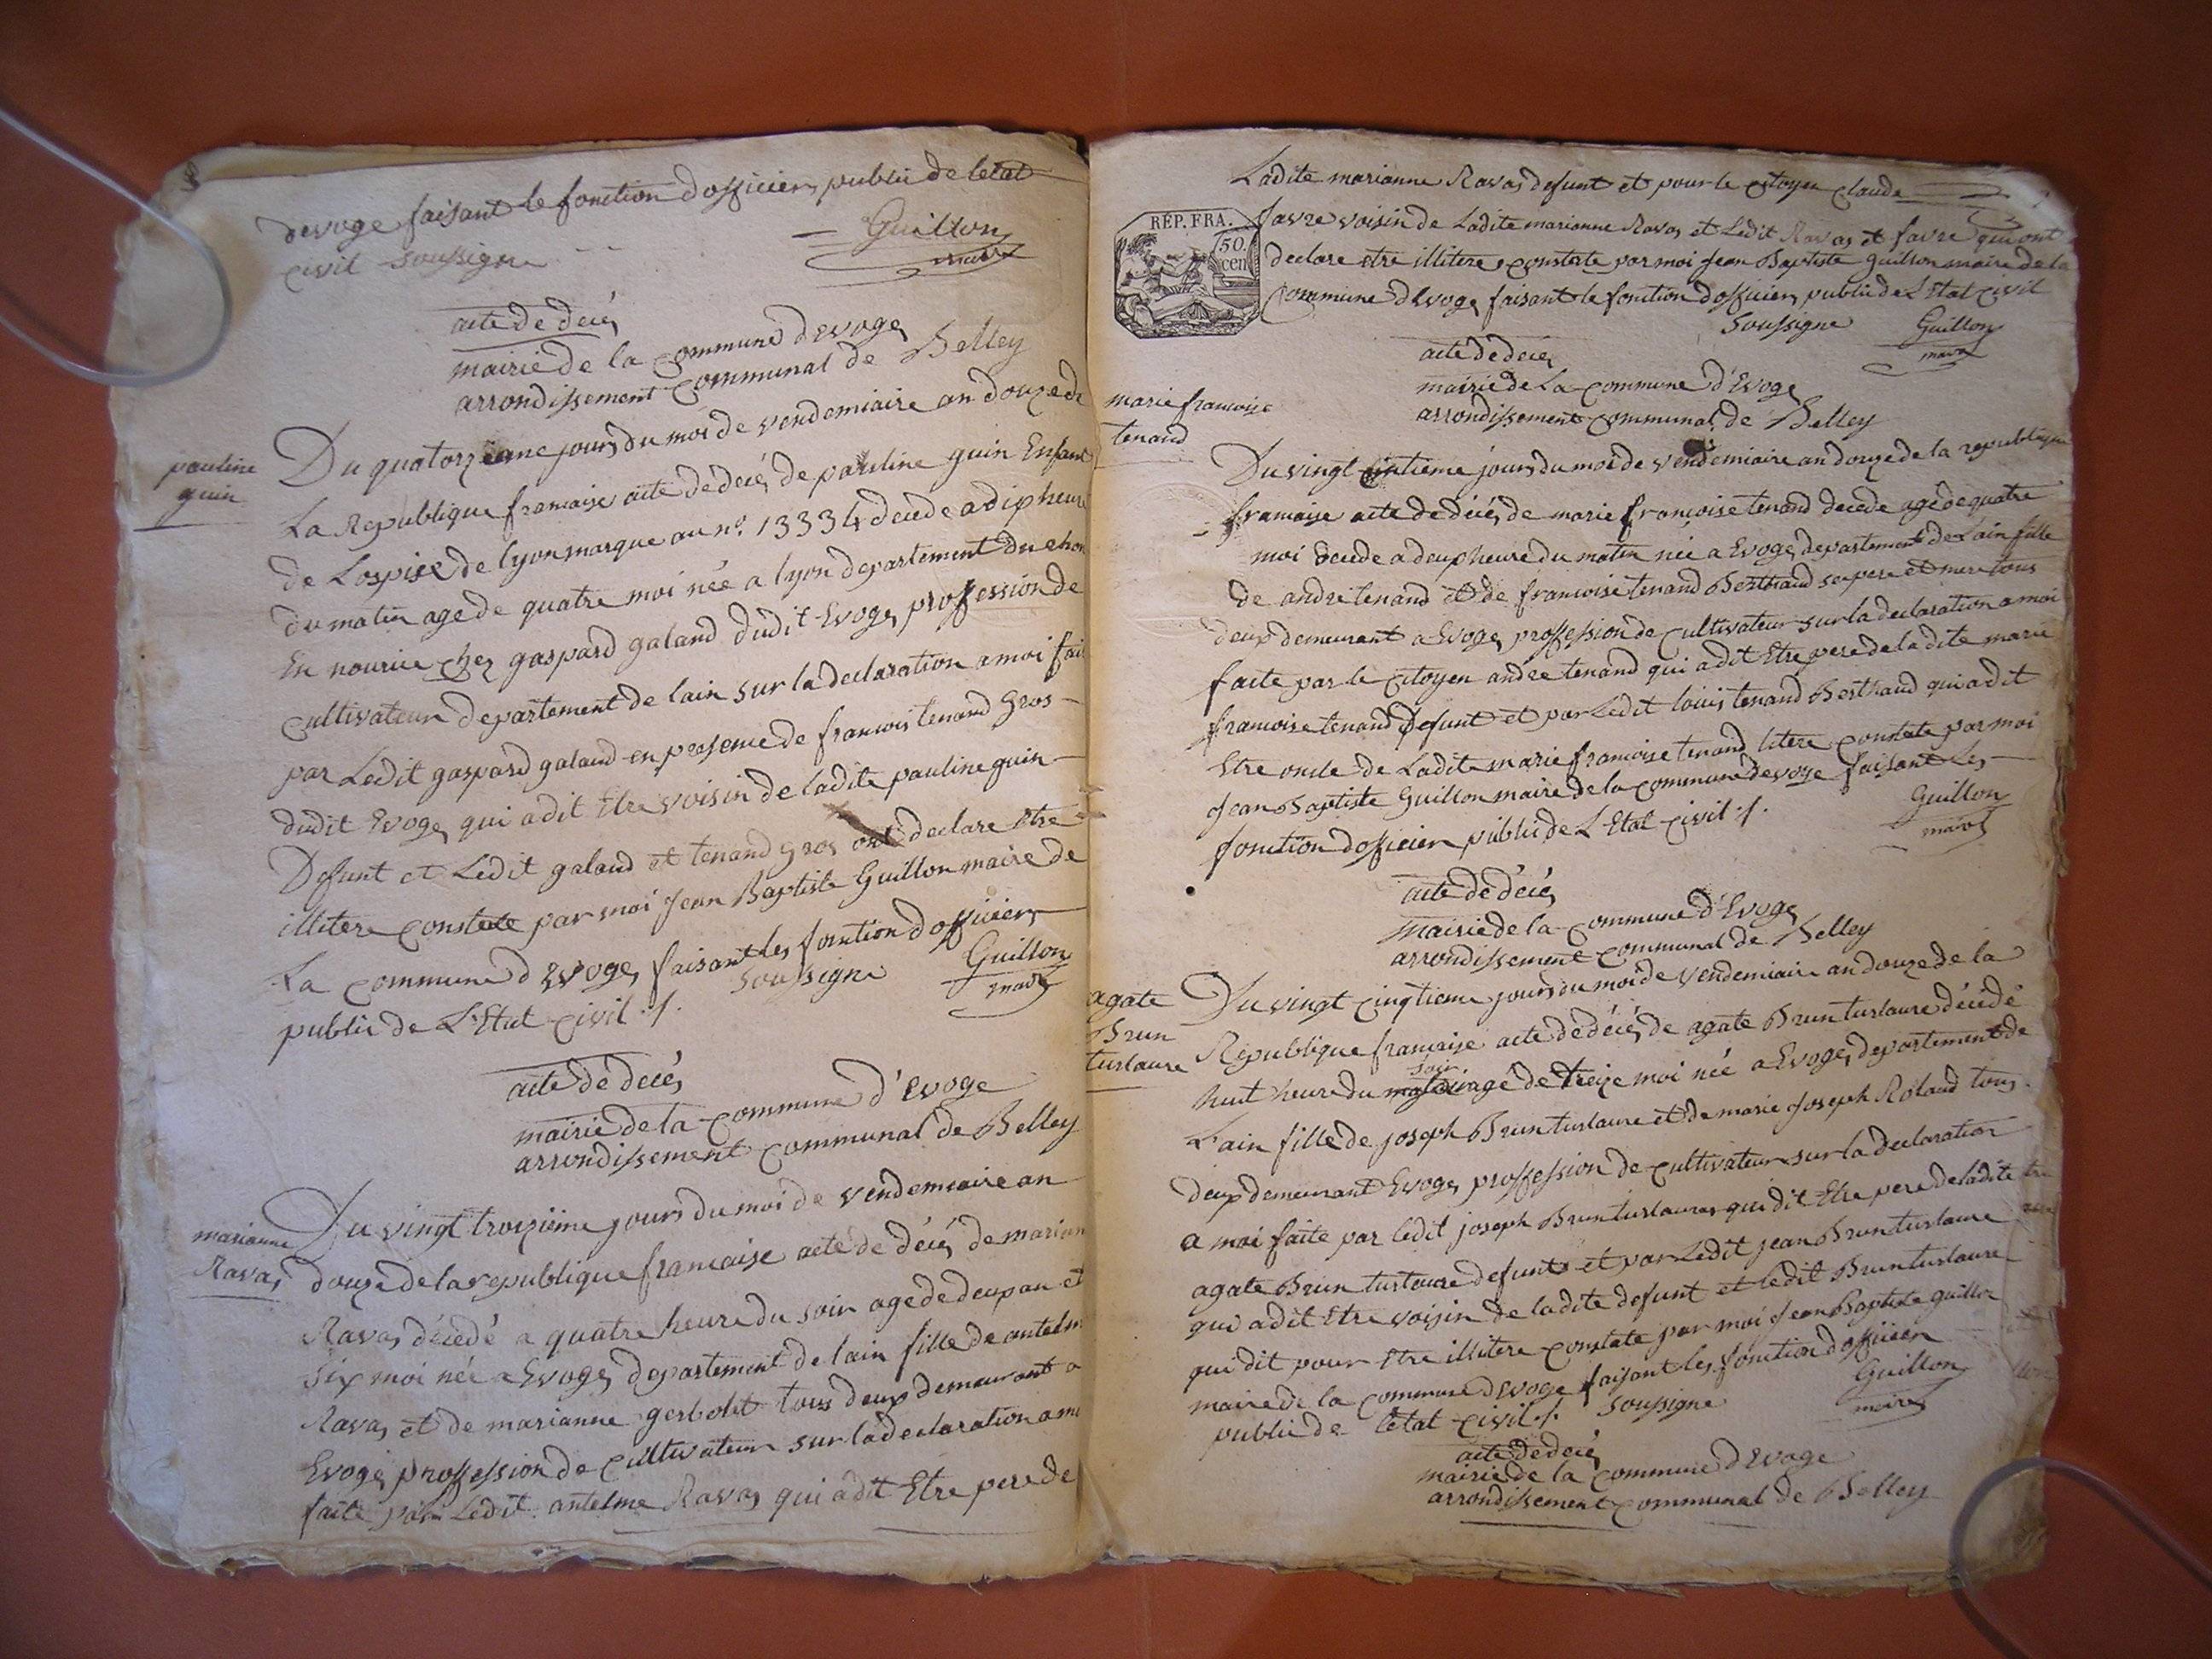 devoge faisant le fonction dofficier public de letat
civil soussigne
Guillon
maire
acte de deces
mairie de la commune devoges
arrondissement communal de Belley
pauline
guin
Du quatorzieme jours du moi de vendemiaire an douze de
La Republique francaise acte de décés de pauline guin Enfant
de Lospise de lyon marque au n.º 13334 decede a dix heure
du matin age de quatre moi née a lyon departement du rhon
En nourice chez gaspard galand dudit Evoges proffession de
cultivateur departement de lain sur la declaration a moi fai
par Ledit gaspard galand en presence de francois tenand Gros
dudit Evoges qui a dit Etre voisin de ladite pauline guin
Defunt et Ledit galand et tenand gros ont declare Etre
illitere constate par moi Jean Baptiste Guillon maire de
La commune d Evoges faisant les fonction dofficiers
public de L'Etat civil ./.
soussigne
Guillon
maire
acte de deces
mairie de la commune d'Evoge
arrondissement communal de Belley
marianne
Ravas
Du vingt troizième jours du moi de vendemiaire an
douze de la republique francaise acte de décés de mariann
Ravas décedé a quatre heure du soir age de deux an et
six moi née a Evoges departement de lain fille de antelm
Ravas et de marianne gerbolet tous deux demeurant a
Evoges proffession de cultivateur sur la declaration a mo
faite par Ledit antelme Ravas qui a dit Etre pere de
Ladite marianne Ravas defunt et pour le citoyen claude
RÉP. FRA.
50.
cen
favre voisin de Ladite marianne Ravas et Ledit Ravas et favre qui ont
declare etre illitere constate par moi Jean Baptiste guillon maire de la
Commune dEvoges faisant le fonction dofficiers public de L'Etat civil
soussigne
Guillon
maire
acte de deces
mairie de La commune d'Evoges
arrondissement communal de Belley
marie francoise
tenand
Du vingt cintieme jours du moi de vendemiaire an douze de la republique
francaise acte de décés de marie francoise tenand decede agé de quatre
moi decede a deux heure du matin née a Evoges departement de Lain fille
de andre tenand et de francoise tenand Berthaud se pere et mere tous
deux demeurant a Evoges proffession de cultivateur sur la declaration a moi
faite par le citoyen andre tenand qui a dit Etre pere de ladite marie
francoise tenand defunt et par Ledit louis tenand Berthaud qui a dit
Etre oncle de Ladite marie francoise tenand litere constate par moi
Jean Baptiste Guillon maire de la commune devoge faisant Les
fonction dofficier public de L'Etat civil ./.
Guillon
maire
acte de décés
mairie de la commune d'Evoges
arrondissement communal de Belley
agate
Brun
turlaure
Du vingt cinqtieme jours du moi de vendemiaire an douze de la
Republique francaise acte de décés de agate Brun turlaure décédé
soir
huit heure du matin agé de treize moi née a Evoges departement de
L'ain fille de joseph Brun turlaure et de marie Joseph Roland tous
deux demeurant Evoges proffession de cultivateur sur la declaration
a moi faite par ledit joseph Brun turlaure qui dit Etre pere de ladite
agate Brun turlaure defunt et par Ledit jean Brun turlaure
qui a dit Etre voisin de ladite defunt et ledit Brun turlaure
qui dit pour Etre illitere constate par moi Jean Baptiste guillon
maire de la commune dEvoge faisant les fonction dofficier
public de letat civil ./.
soussigne
Guillon
maire
acte de decés
mairie de la commune d Evoge
arrondissement communal de Belley